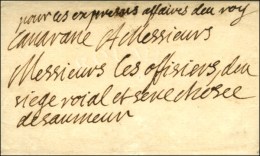 pour les expresses affaires du roy
A Messieurs
Messieurs les offisiers du
siege roial et senechosee
de saumeur